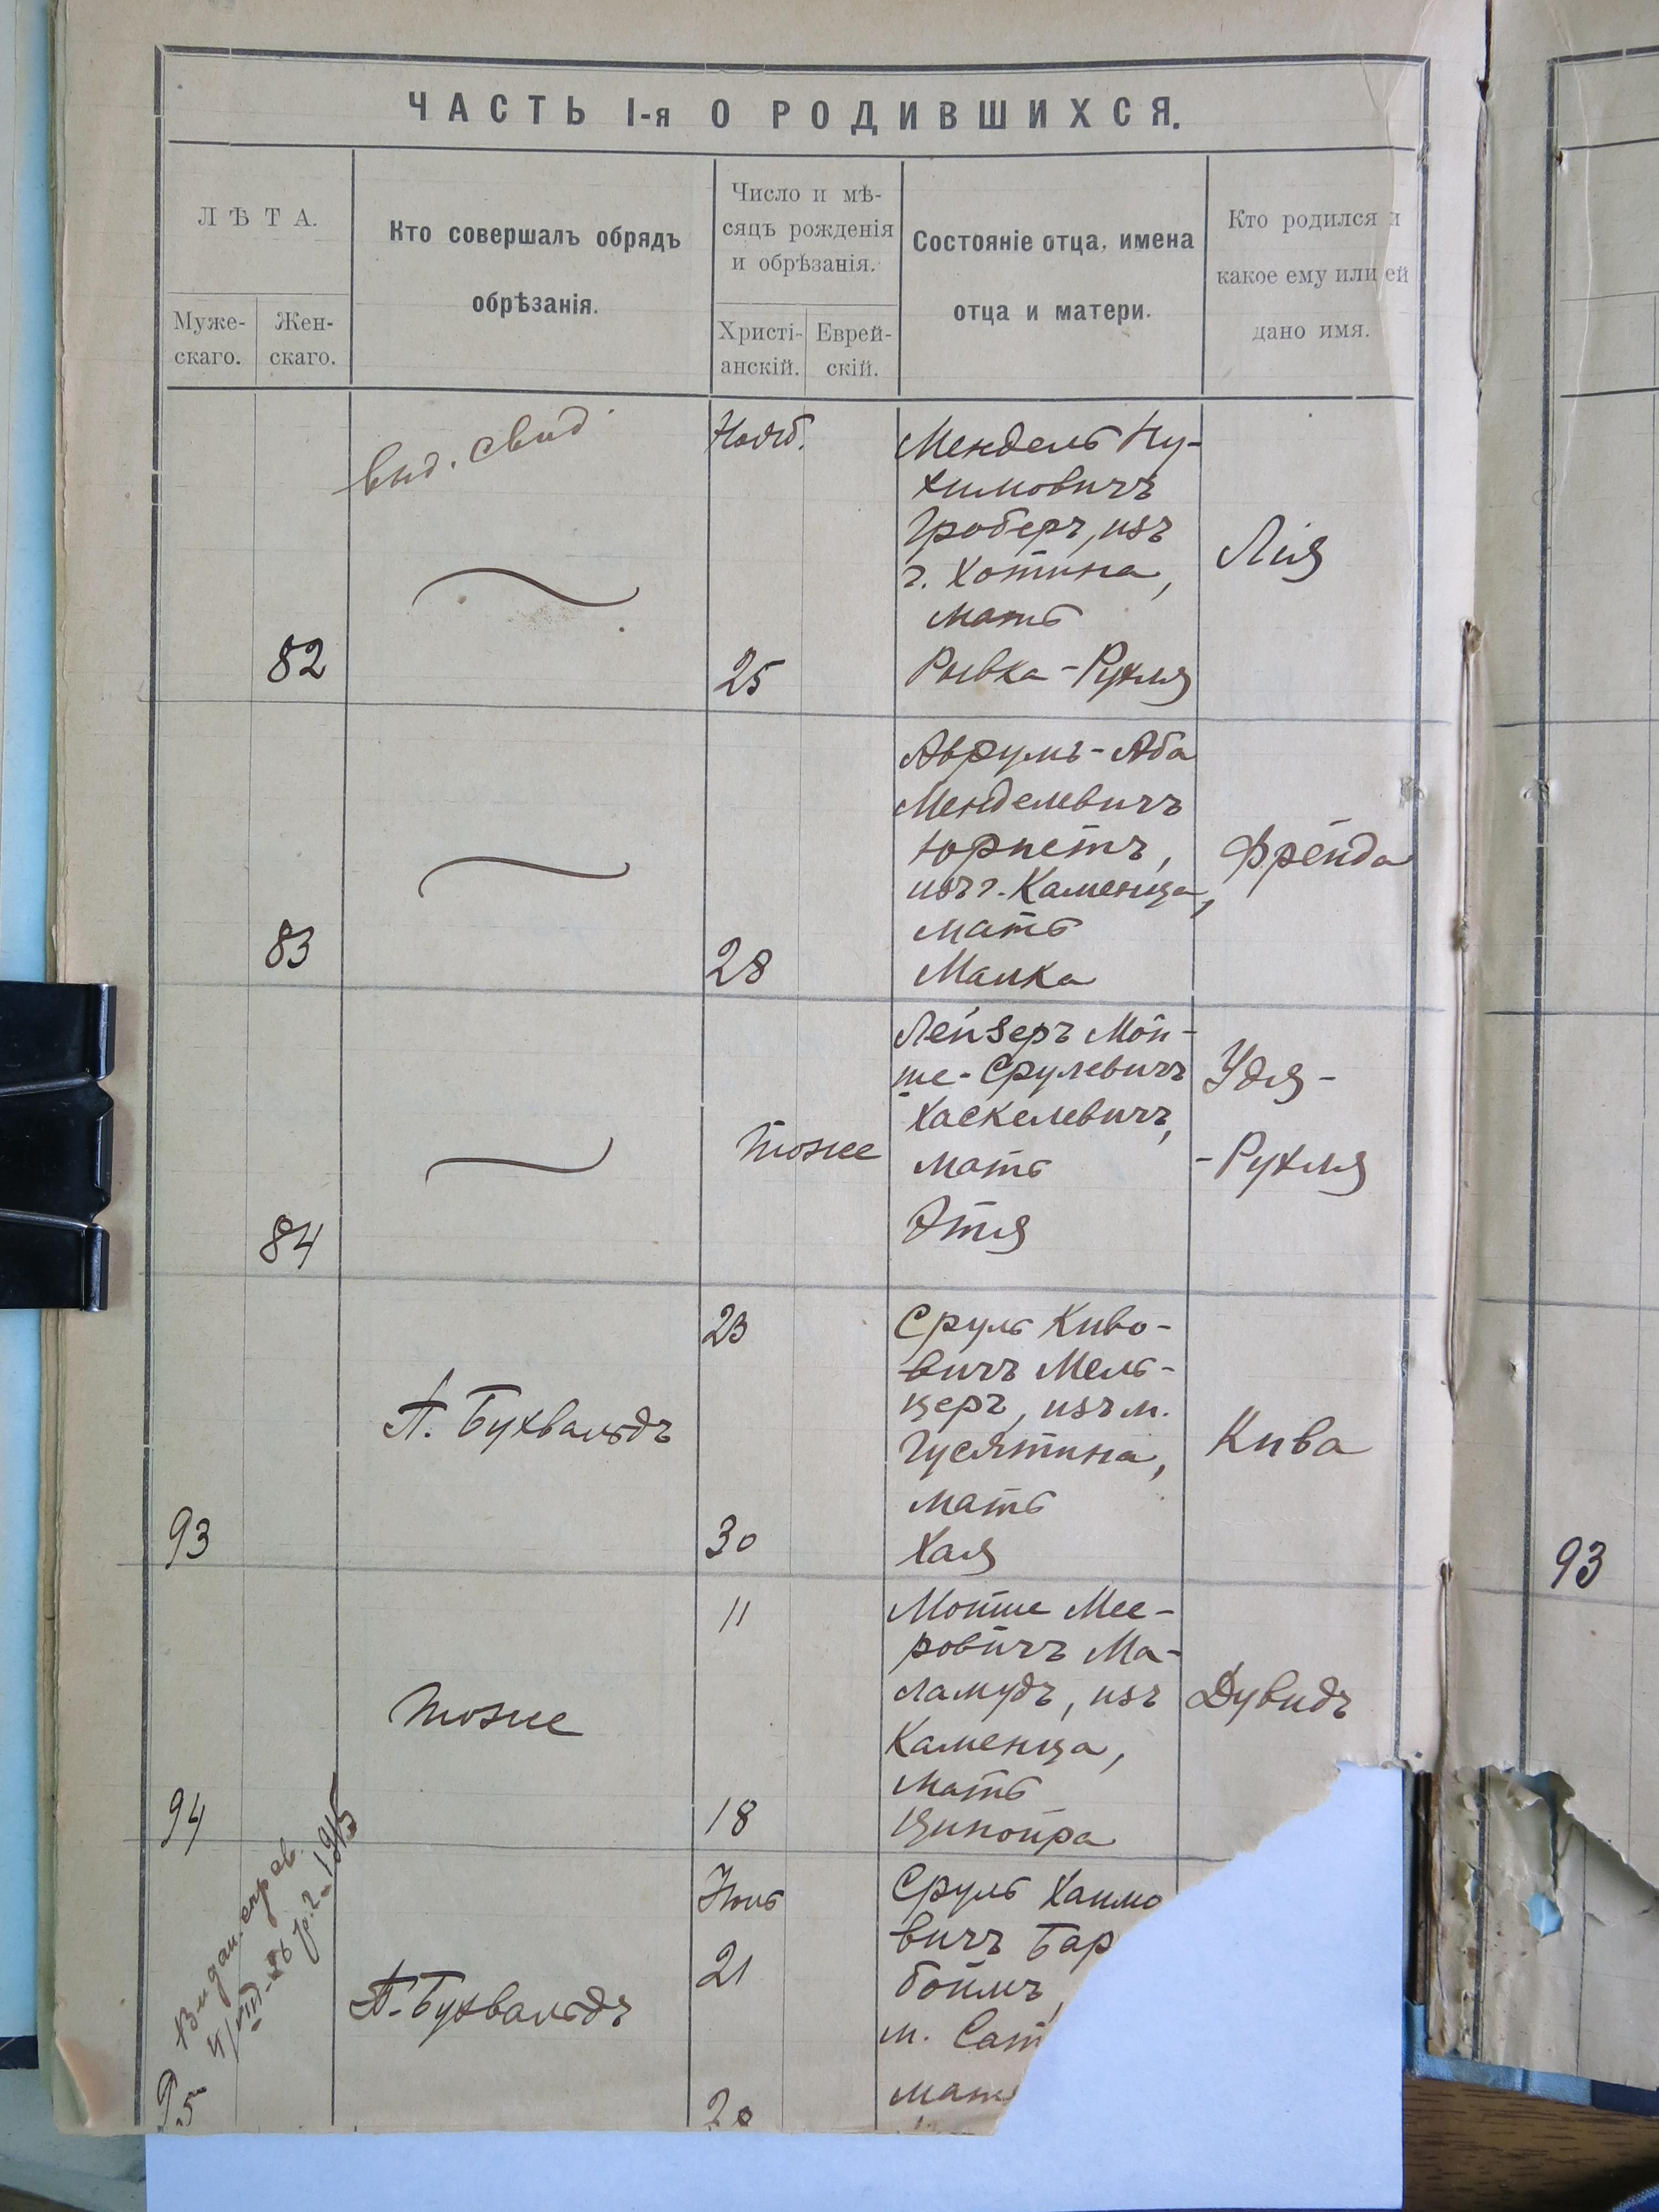 ЧАСТЬ I-я О РОДИВШИХСЯ.
ЛѢТА.
Муже-
скаго.
Жен-
скаго.
Кто совершалъ обрядъ
обрѣзанія.
Число и мѣ-
сяцъ рожденія
и обрѣзанія.
Христі-
анскій.
Еврей-
скій.
Состояніе отца, имена
отца и матери.
Кто родился и
какое ему или ей
дано имя.
выд. свид.
82
Нояб.
25
Мендель Ну-
химовичъ
Гроберъ, изъ
г. Хотина,
мать
Рывка-Рухля
Лія
83
28
Аврумъ-Аба
Менделевичъ
Юрпетъ,
изъ г. Каменца,
мать
Малка
Фрейда
84
тоже
Лейзеръ Мой-
ше-Срулевичъ
Хаскелевичъ,
мать
Этля
Удя-
-Рухля
93
А. Бухвальдъ
23
30
Сруль Киво-
вичъ Мель-
церъ, изъ м.
Гусятина,
мать
Хая
Кива
93
94
тоже
11
18
Мойше Мее-
ровичъ Ма-
ламудъ, изъ
Каменца,
мать
Ципойра
Дувидъ
95
А. Бухвальдъ
21
Сруль Хаимо
вичъ Бар
боймъ,
м. Сат
мать